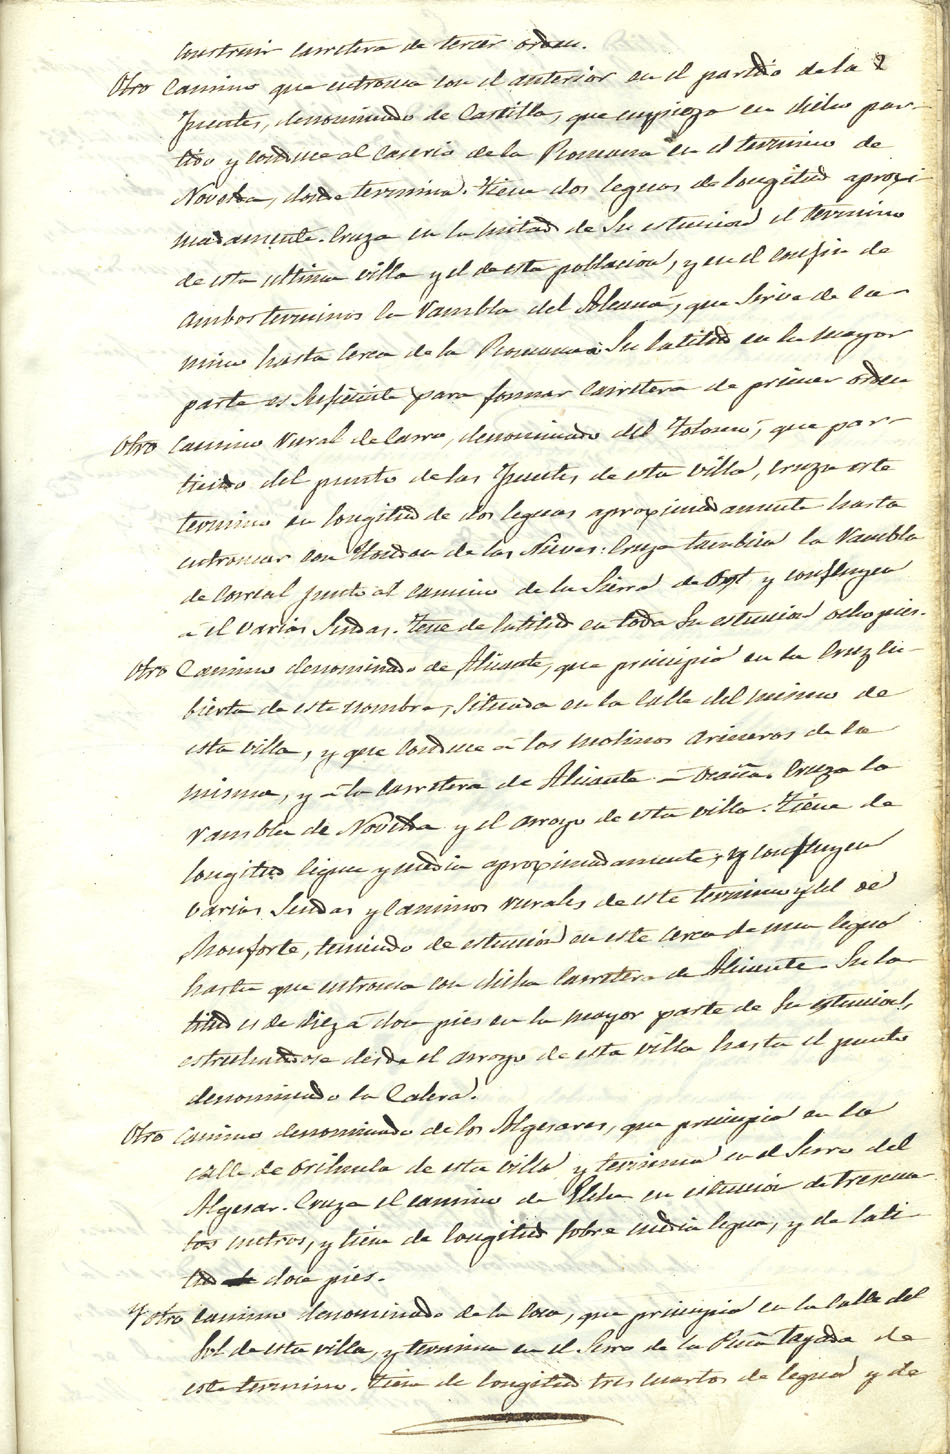 construir carretera de tercer orden.
2
Otro Camino que entronca con el anterior en el partido de la
fuente, denominado de Castilla, que empieza en dicho par-
tido y conduce al Caserio de la Romana en el termino de
Novelda, donde termina. Tiene dos leguas de longitud aproxi-
madamente. Cruza en la mitad de su estencion el termino
de esta ultima villa y el de esta poblacion, y en el confin de
ambos terminos la Rambla del , que sirve de ca-
mino hasta cerca de la Romana. Su latitud en la mayor
parte es suficiente para formar Carretera de primer orden
Otro Camino Rural de Carro, denominado del , que par-
tiendo del punto de las fuentes de esta villa, cruza este
termino en longitud de dos leguas aproximadamente hasta
entroncar con Hondon de las Nieves. Cruza tambien la Rambla
de junto al camino de la Sierra de y confluyen
á él varias sendas. Tiene de latitud en toda su estencion ocho pies.
Otro Camino denominado de Alicante, que principia en la Cruz cu-
bierta de este nombre, situada en la Calle del mismo de
esta villa, y que conduce á los molinos arineros de la
misma, y á la Carretera de Alicante á Ocaña. Cruza la
Rambla de Novelda y el arroyo de esta villa. Tiene de
longitud legua y media aproximadamente, y confluyen
varias sendas y Caminos rurales de este termino y del de
Monforte, teniendo de estencion en este cerca de una legua
hasta que entronca con dicha Carretera de Alicante. Su la-
titud es de diez á doce pies en la mayor parte de su estencion,
estrechandose desde el arroyo de esta villa hasta el punto
denominado la Calera.
Otro Camino denominado de los Algesares, que principia en la
calle de Orihuela de esta villa y termina en el Serro del
Algesar. Cruza el camino de Elche en estencion de trescien-
tos metros, y tiene de longitud sobre media legua, y de lati-
tud doce pies.
Y otro Camino denominado de la Coca, que principia en la Calle del
Sol de esta villa, y termina en el Serro de la Peña tajada de
este termino. Tiene de longitud tres cuartos de legua y de